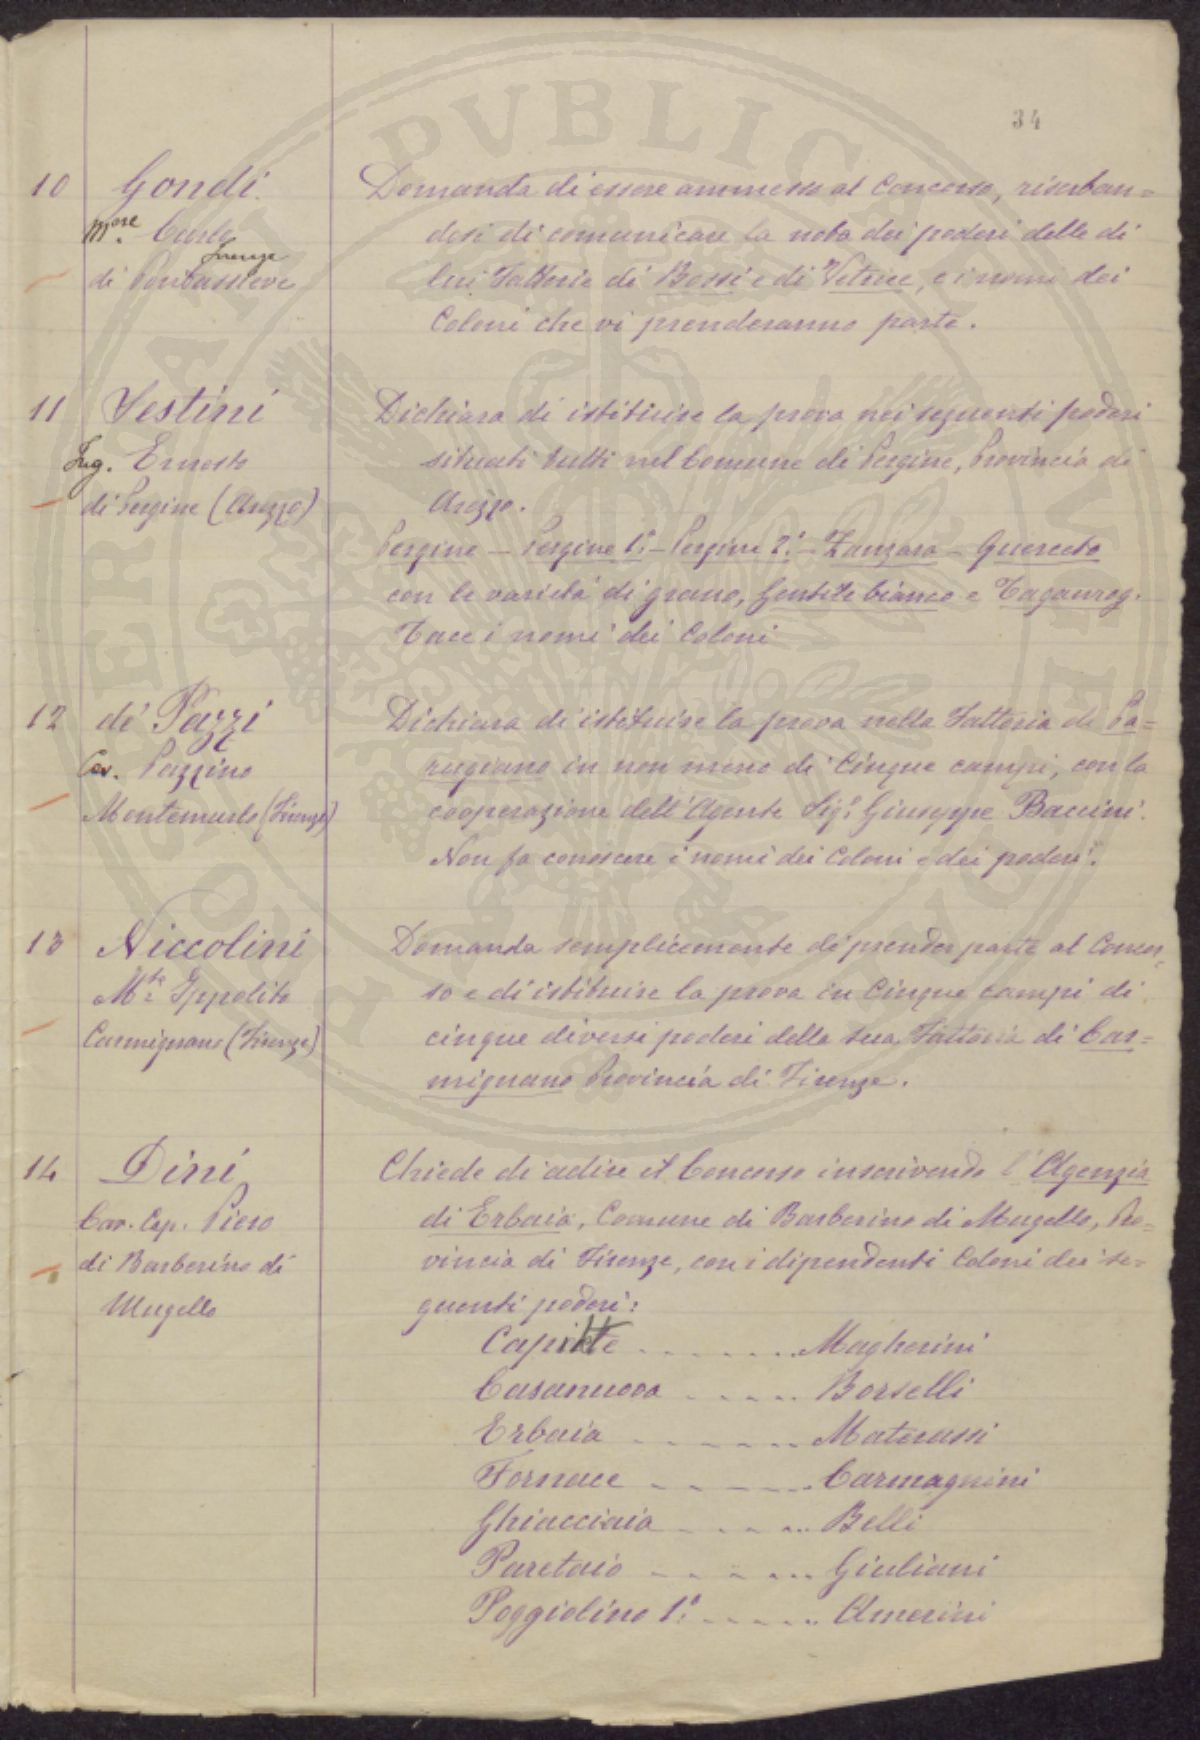 34
10 Gondi
M.se Carlo
Firenze
di Pontassieve
Domanda di essere ammesso al Concorso, riserban=
dosi di comunicare la nota dei poderi delle di
lui Fattorie di Bossi e di Vetrice, e i nomi dei
Coloni che vi prenderanno parte.
11 Sestini
Ing. Ernesto
di Pergine (Arezzo)
Dichiara di istituire la prova nei seguenti poderi
situati tutti nel Comune di Pergine, Provincia di
Arezzo.
Pergine — Pergine 1.° — Pergine 2.° — Zanzara — Querceto
con le varietà di grano, Gentile bianco e Taganrog.
Tace i nomi dei Coloni
12 de' Pazzi
Cav. Pazzino
Montemurlo (Firenze)
Dichiara di istituire la prova nella Fattoria di Pa=
rugiano in non meno di Cinque campi, con la
cooperazione dell'Agente Sig.r Giuseppe Baccini.
Non fa conoscere i nomi dei Coloni e dei poderi.
13 Niccolini
M.se Ippolito
Carmignano (Firenze)
Domanda semplicemente di prender parte al Concor=
so e di istituire la prova in Cinque campi di
cinque diversi poderi della sua Fattoria di Car=
mignano Provincia di Firenze.
14 Dini
Cav. Cap. Piero
di Barberino di
Mugello
Chiede di adire al Concorso inscrivendo l'Agenzia
di Erbaia, Comune di Barberino di Mugello, Pro=
vincia di Firenze, con i dipendenti Coloni dei se=
guenti poderi:
Capitte ........ Magherini
Casanuova ..... Borselli
Erbaia ....... Materassi
Fornace ...... Carmagnini
Ghiacciaia ...... Belli
Paretaio ....... Giuliani
Poggiolino 1.° ...... Amerini